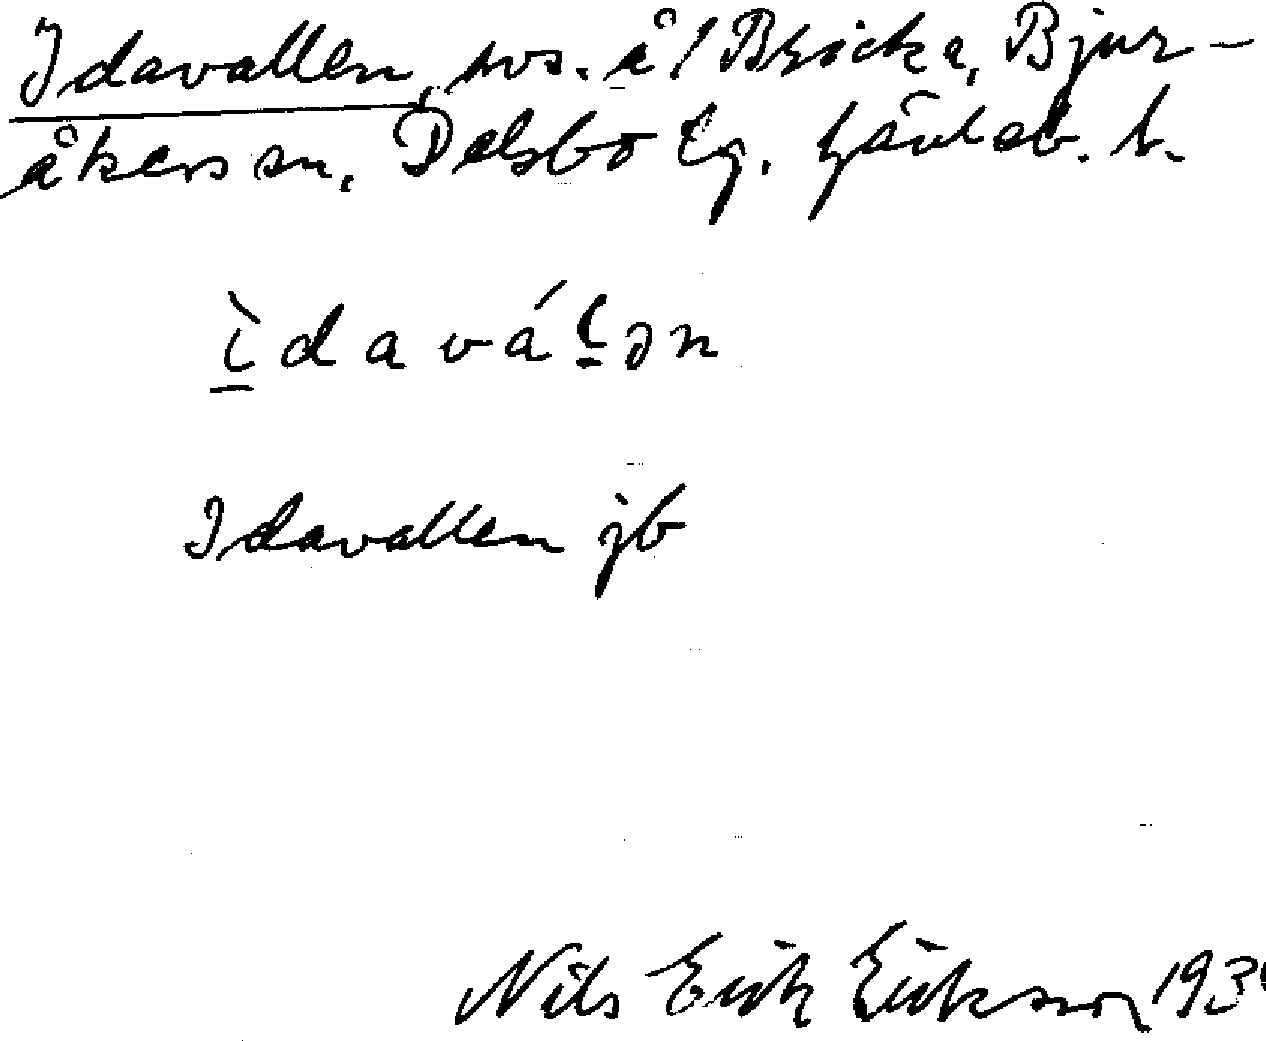 Idavallen, avs. å / Bricka, Bjur-
åkers sn, Delsbo tg. Gävleb. l.
ìdaválən
Idavallen jb
Nils Erik Erikson 193